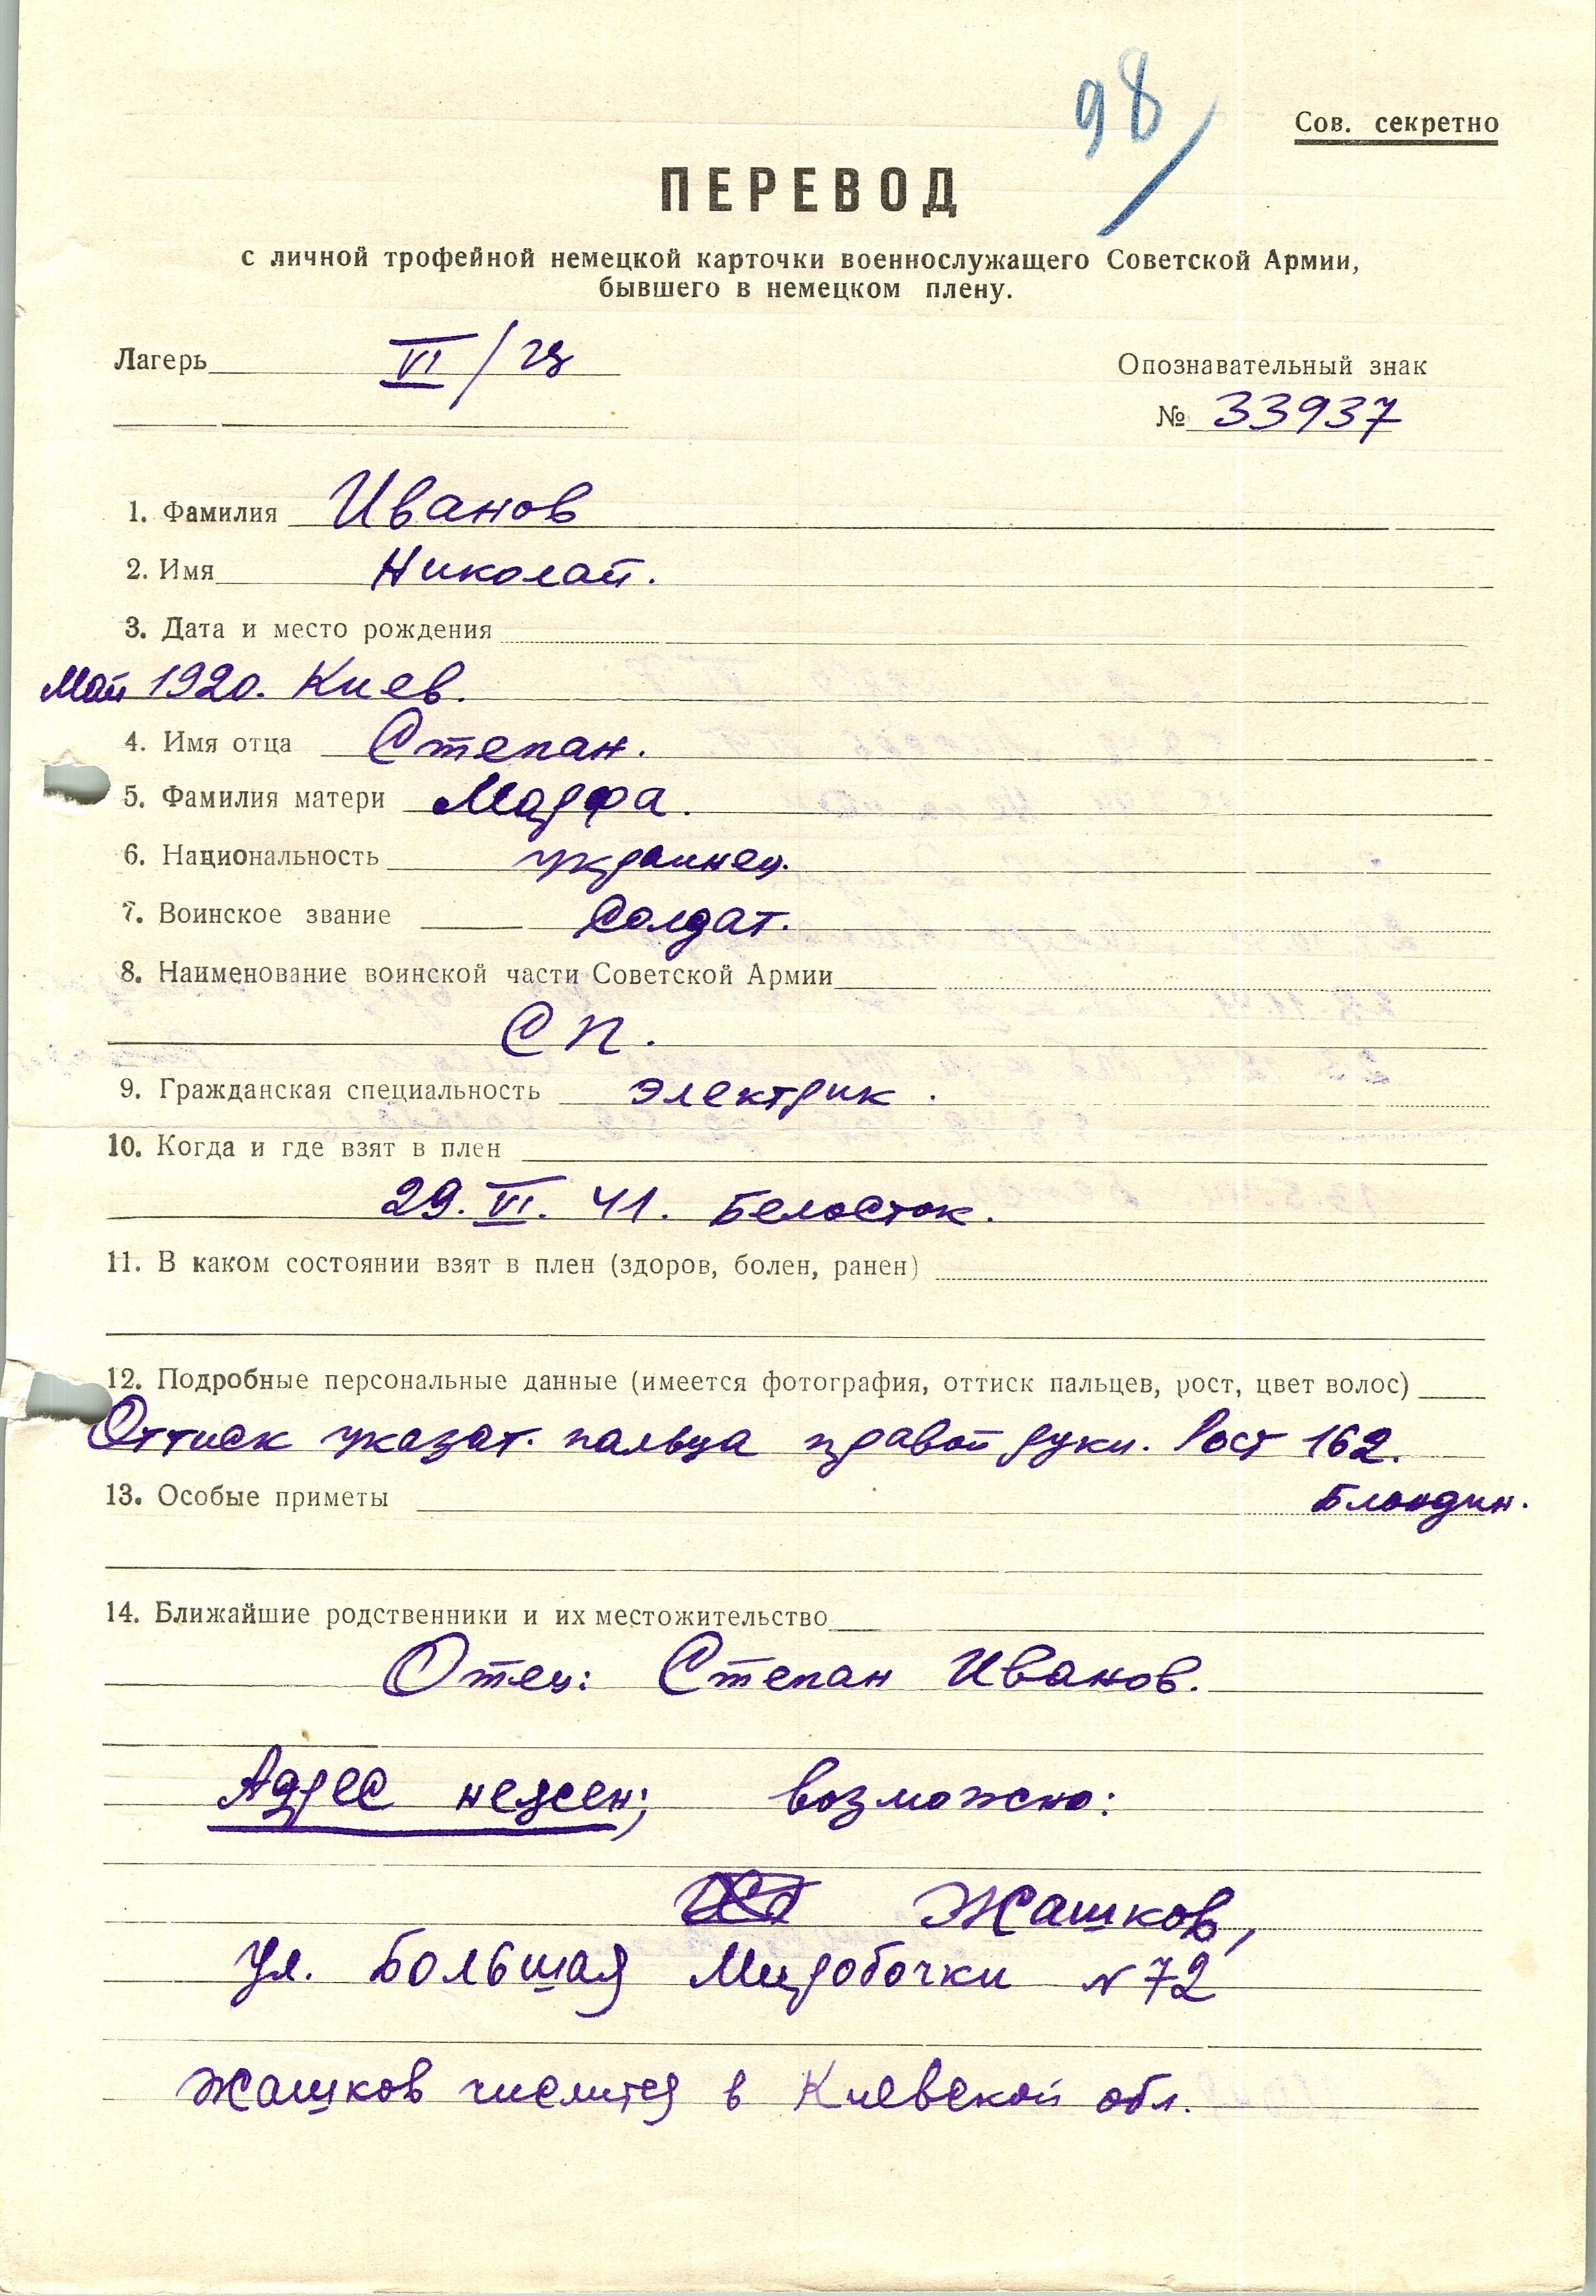 98/
Сов. секретно
ПЕРЕВОД
с личной трофейной немецкой карточки военнослужащего Советской Армии,
бывшего в немецком плену.
Лагерь VI/
Опознавательный знак
№ 33937
1. Фамилия Иванов
2. Имя Николай.
3. Дата и место рождения
Май 1920. Киев.
4. Имя отца Степан.
5. Фамилия матери Марфа.
6. Национальность украинец.
7. Воинское звание Солдат.
8. Наименование воинской части Советской Армии
СП.
9. Гражданская специальность электрик.
10. Когда и где взят в плен
29. VI. 41. Белосток.
11. В каком состоянии взят в плен (здоров, болен, ранен)
12. Подробные персональные данные (имеется фотография, оттиск пальцев, рост, цвет волос)
Оттиск указат. пальца правой руки. Рост 162.
Блондин.
13. Особые приметы
14. Ближайшие родственники и их местожительство
Отец: Степан Иванов.
Адрес неясен; возможно:
Жашков,
Ул. Большая №72
Жашков числится в Киевской обл.